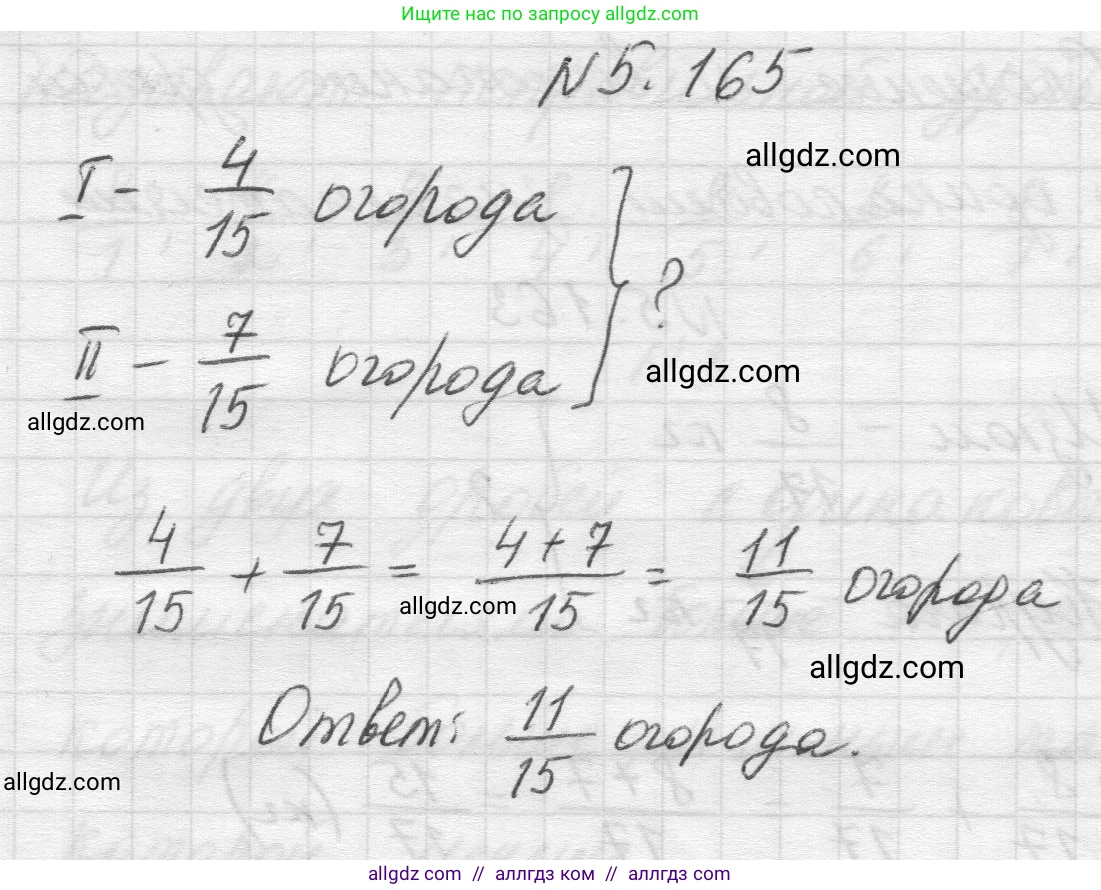 Ищите нас по запросу allgdz.com
N 5.165
allgdz.com
I - 4/15 огорода
} ?
II - 7/15 огорода
allgdz.com
allgdz.com
4/15 + 7/15 = (4+7)/15 = 11/15 огорода
allgdz.com
allgdz.com
Ответ: 11/15 огорода.
allgdz.com
allgdz.com // аллгдз ком // аллгдз.com